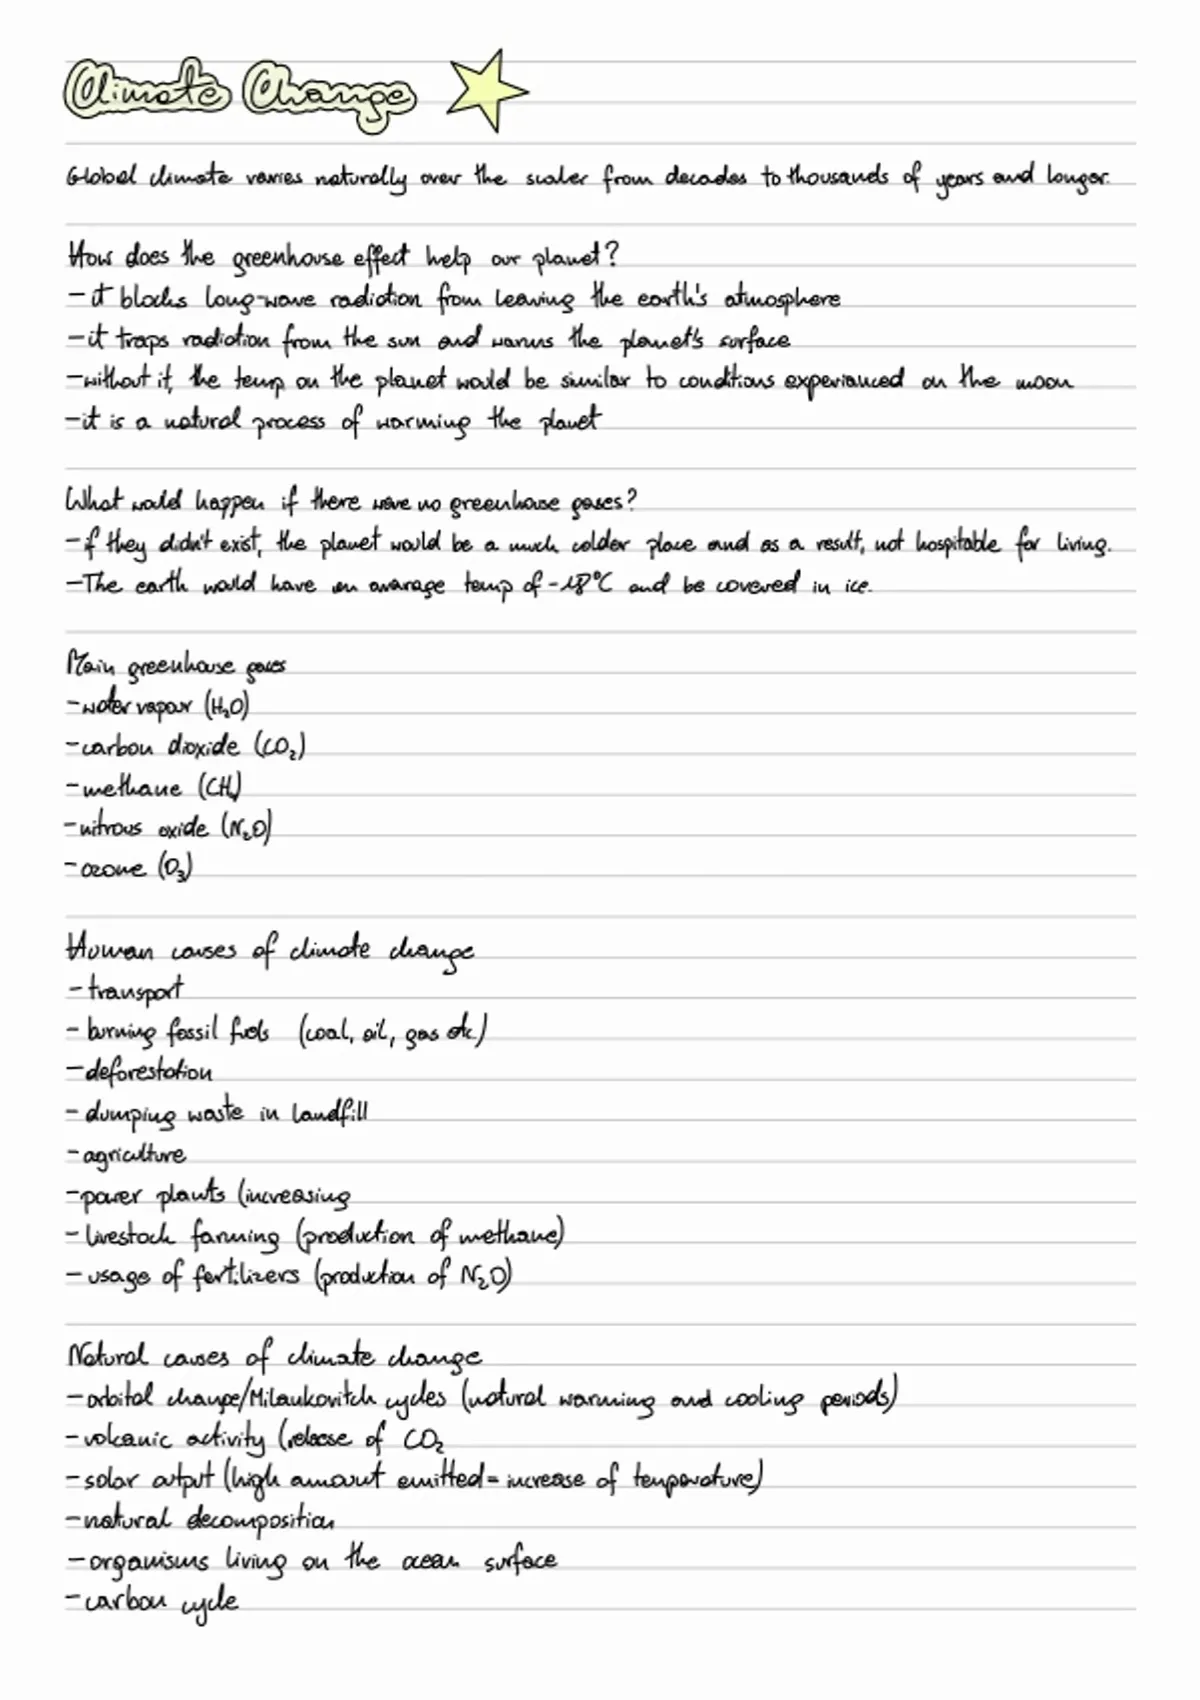 Climate Change
Global climate varies naturally over the scaler from decades to thousands of years and longer.
How does the greenhouse effect help our planet?
- it blocks long-wave radiation from leaving the earth's atmosphere
- it traps radiation from the sun and warms the planet's surface
- without it, the temp on the planet would be similar to conditions experianced on the moon
- it is a natural process of warming the planet
What would happen if there were no greenhouse gases?
- if they didn't exist, the planet would be a much colder place and as a result, not hospitable for living.
- The earth would have an avarage temp of -18°C and be covered in ice.
Main greenhouse gases
- water vapour (H₂O)
- carbon dioxide (CO₂)
- methane (CH₄)
- nitrous oxide (N₂O)
- ozone (O₃)
Human causes of climate change
- transport
- burning fossil fuels (coal, oil, gas etc.)
- deforestation
- dumping waste in landfill
- agriculture
- power plants (increasing
- livestock farming (production of methane)
- usage of fertilizers (production of N₂O)
Natural causes of climate change
- orbital change/Milankovitch cycles (natural warming and cooling periods)
- volcanic activity (release of CO₂
- solar output (high amount emitted = increase of temperature)
- natural decomposition
- organisms living on the ocean surface
- carbon cycle